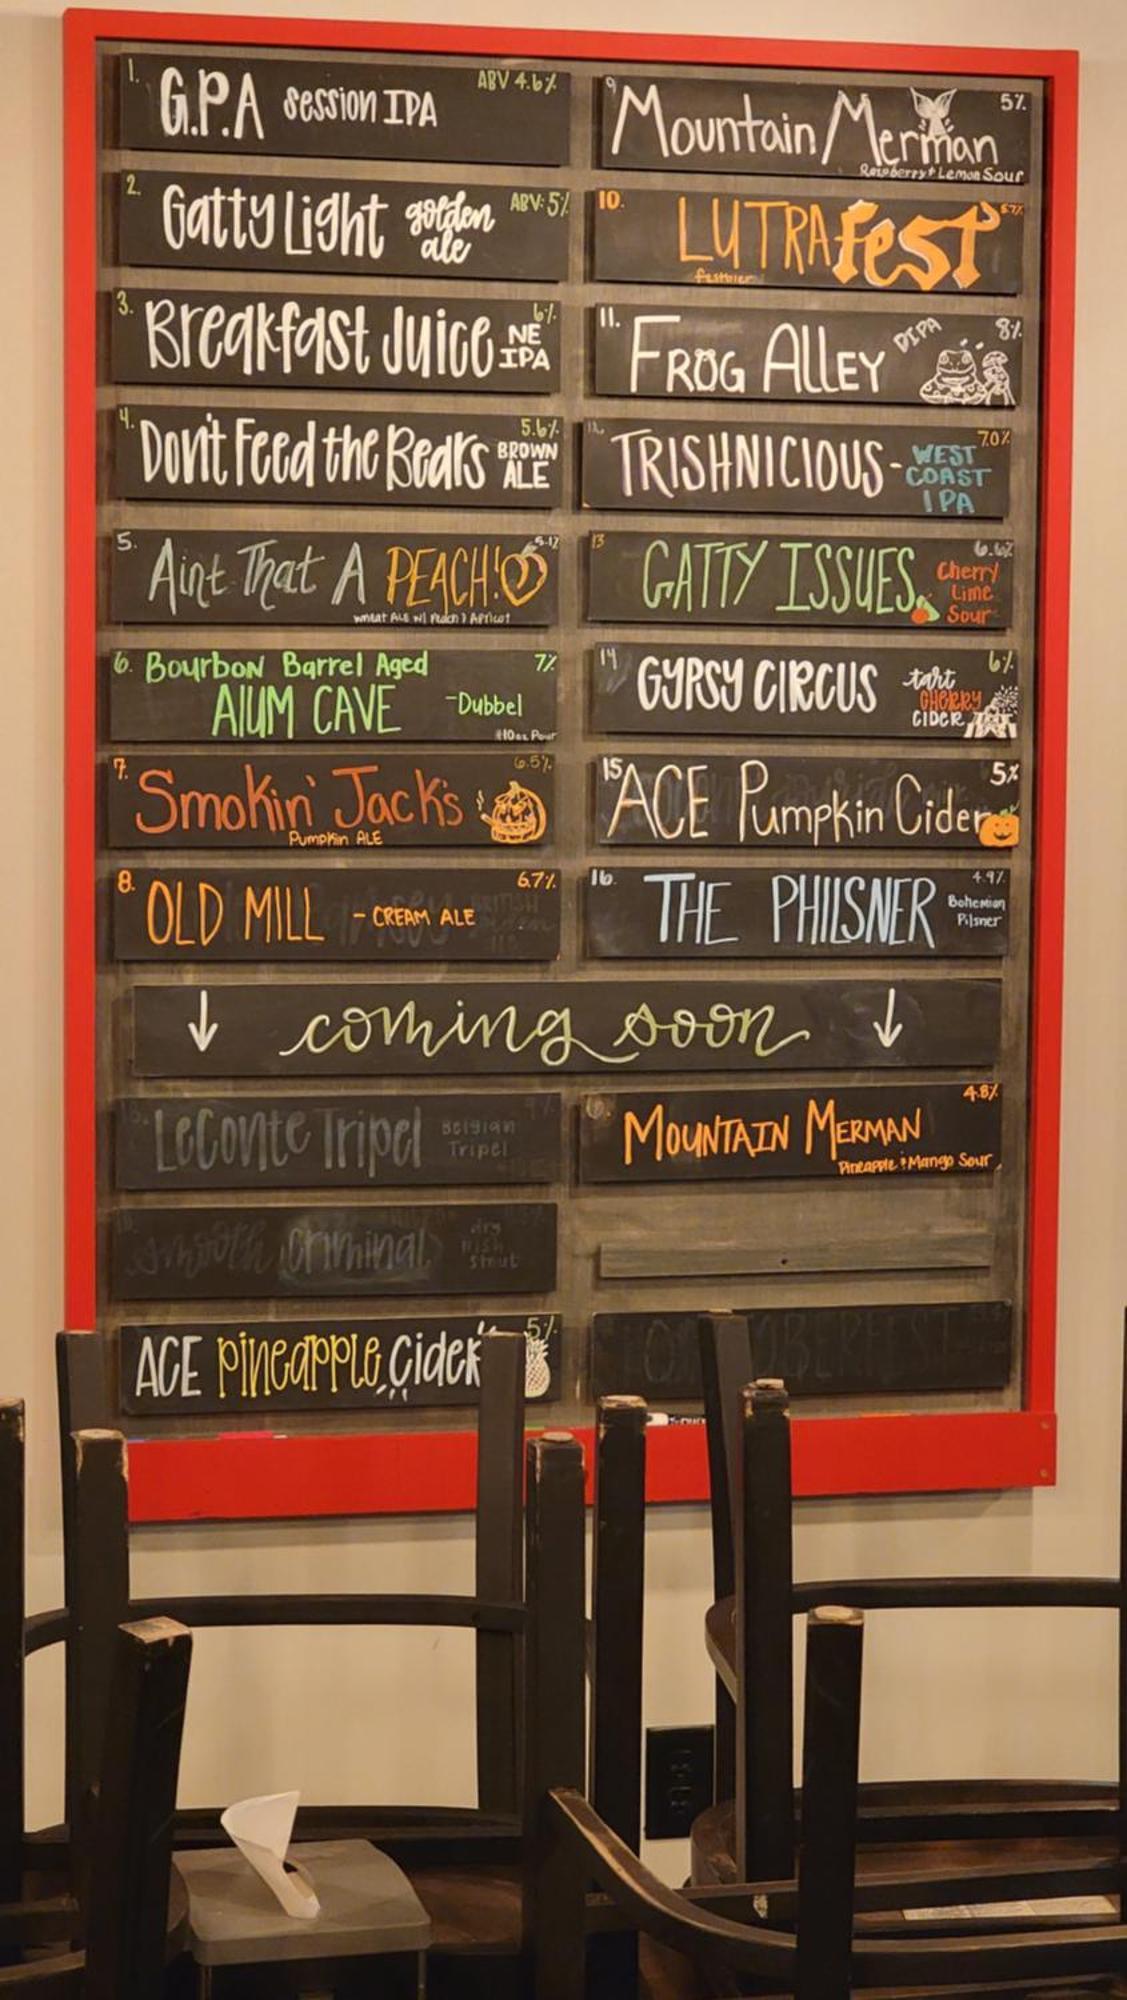 1. G.P.A session IPA ABV 4.6%
2. Gatty Light golden ale ABV: 5%
3. Breakfast Juice NE IPA 6%
4. Don't Feed the Bears BROWN ALE 5.6%
5. Aint That A PEACH! 5.1%
Wheat ALE w/ Peach & Apricot
6. Bourbon Barrel Aged 7%
AlUM CAVE -Dubbel
10oz Pour
7. Smokin' Jack's 6.5%
Pumpkin ALE
8. OLD MILL - CREAM ALE 6.7%
9 Mountain Merman 5%
Raspberry & Lemon Sour
10. LUTRA fest 5.7%
festbier
11. FROG ALLEY DIPA 8%
12. TRISHNICIOUS - WEST COAST IPA 7.0%
13 GATTY ISSUES 6.6%
Cherry Lime Sour
14 GYPSY CIRCUS 6%
tart CHERRY CIDER
15 ACE Pumpkin Cider 5%
16. THE PHILSNER 4.9%
Bohemian Pilsner
↓ coming soon ↓
LeConte Tripel Belgian Tripel 9%
smooth criminal dry irish stout
ACE pineapple Cider 5%
MOUNTAIN MERMAN 4.8%
Pineapple & Mango Sour
OKTOBERFEST